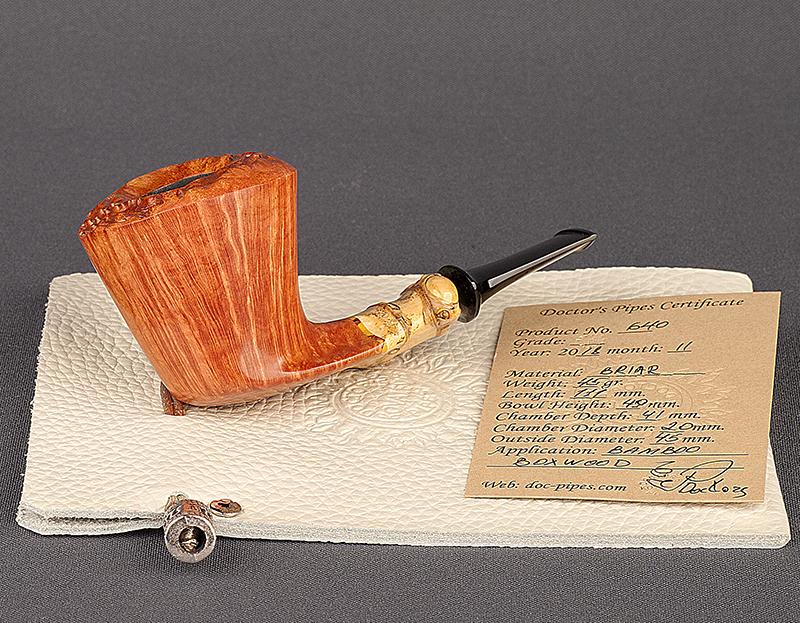 Doctor's Pipes Certificate
Product No. 640
Grade:
Year: 2018 month: 11
Material: BRIAR
Weight: 45 gr.
Length: 111 mm.
Bowl Height: 49 mm.
Chamber Depth: 41 mm.
Chamber Diameter: 20 mm.
Outside Diameter: 46 mm.
Application: BAMBOO
BOXWOOD
Web: doc-pipes.com